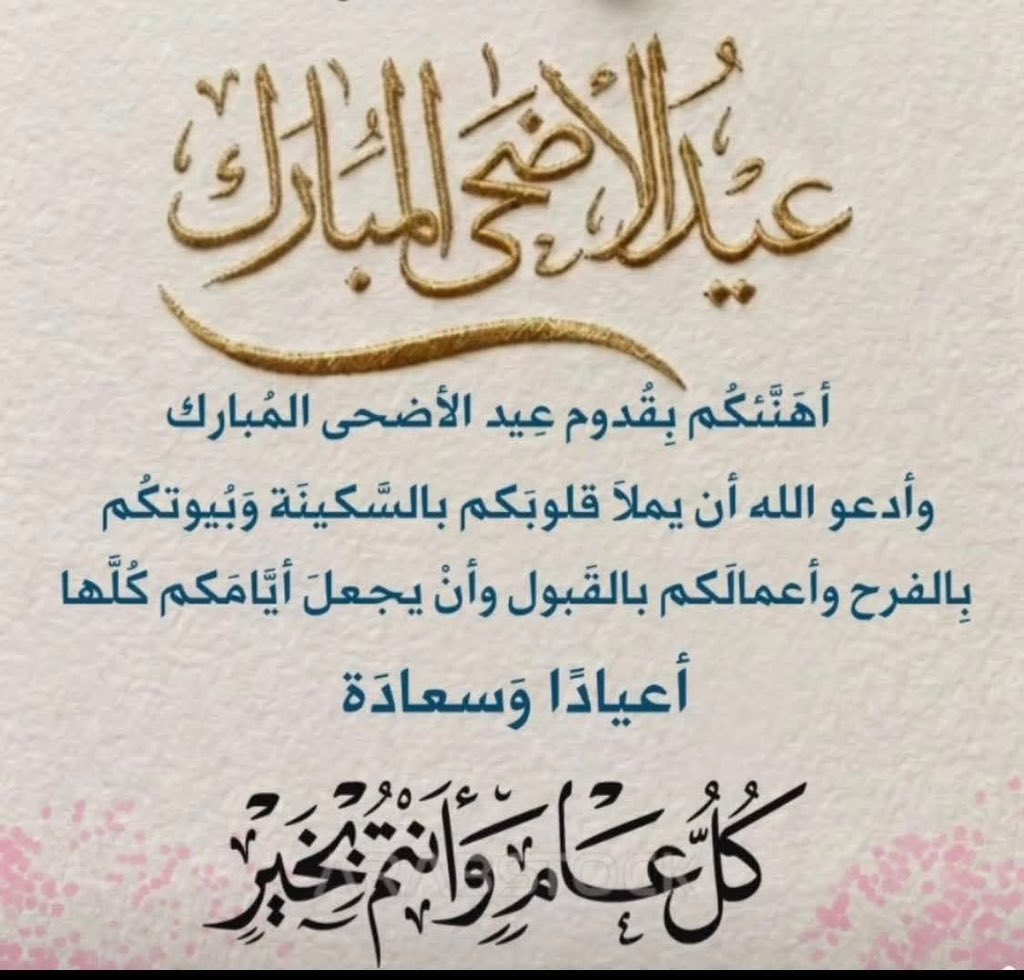 عيد الأضحى المبارك
أهَنَّئكُم بِقُدوم عِيد الأضحى المُبارك
وأدعو الله أن يملاَ قلوبَكم بالسَّكينَة وَبُيوتكُم
بِالفرح وأعمالَكم بالقَبول وأنْ يجعلَ أيَّامَكم كُلَّها
أعيادًا وَسعادَة
كُلُّ عَامٍ وَأَنْتُمْ بِخَيْرٍ